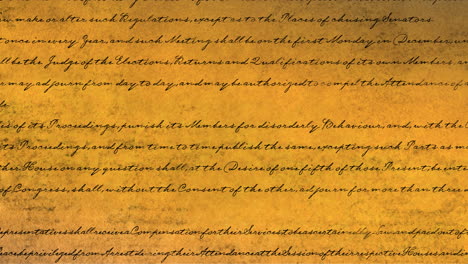 make or alter such Regulations, except as to the Places of chusing Senators.
once in every Year, and such Meeting shall be on the first Monday in December,
ll be the Judge of the Elections, Returns and Qualifications of its own Members
may adjourn from day to day, and may be authorized to compel the Attendance of
le.
es of its Proceedings, punish its Members for disorderly Behaviour, and, with the
ts Proceedings, and from time to time publish the same, excepting such Parts as
the House on any question shall, at the Desire of one fifth of those Present, be
of Congress, shall, without the Consent of the other, adjourn for more than three
epresentatives shall receive a Compensation for their Services, to be ascertained by and paid out of
ace be privileged from Arrest during their Attendance at the Session of their respective Houses, and